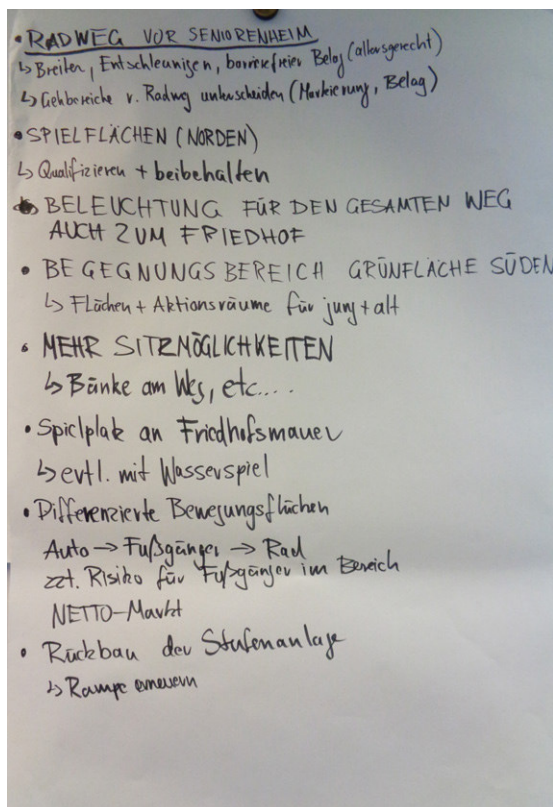 • RADWEG VOR SENIORENHEIM
↳ Breiten, Entschleunigen, barrierefreier Belag (altersgerecht)
↳ Gehbereiche v. Radweg unterscheiden (Markierung, Belag)
• SPIELFLÄCHEN (NORDEN)
↳ Qualifizieren + beibehalten
• BELEUCHTUNG FÜR DEN GESAMTEN WEG
AUCH ZUM FRIEDHOF
• BEGEGNUNGSBEREICH GRÜNFLÄCHE SÜDEN
↳ Flächen + Aktionsräume für jung + alt
• MEHR SITZMÖGLICHKEITEN
↳ Bänke am Weg, etc....
• Spielplatz an Friedhofsmauer
↳ evtl. mit Wasserspiel
• Differenzierte Bewegungsflächen
Auto → Fußgänger → Rad
zzt. Risiko für Fußgänger im Bereich
NETTO-Markt
• Rückbau der Stufenanlage
↳ Rampe erneuern